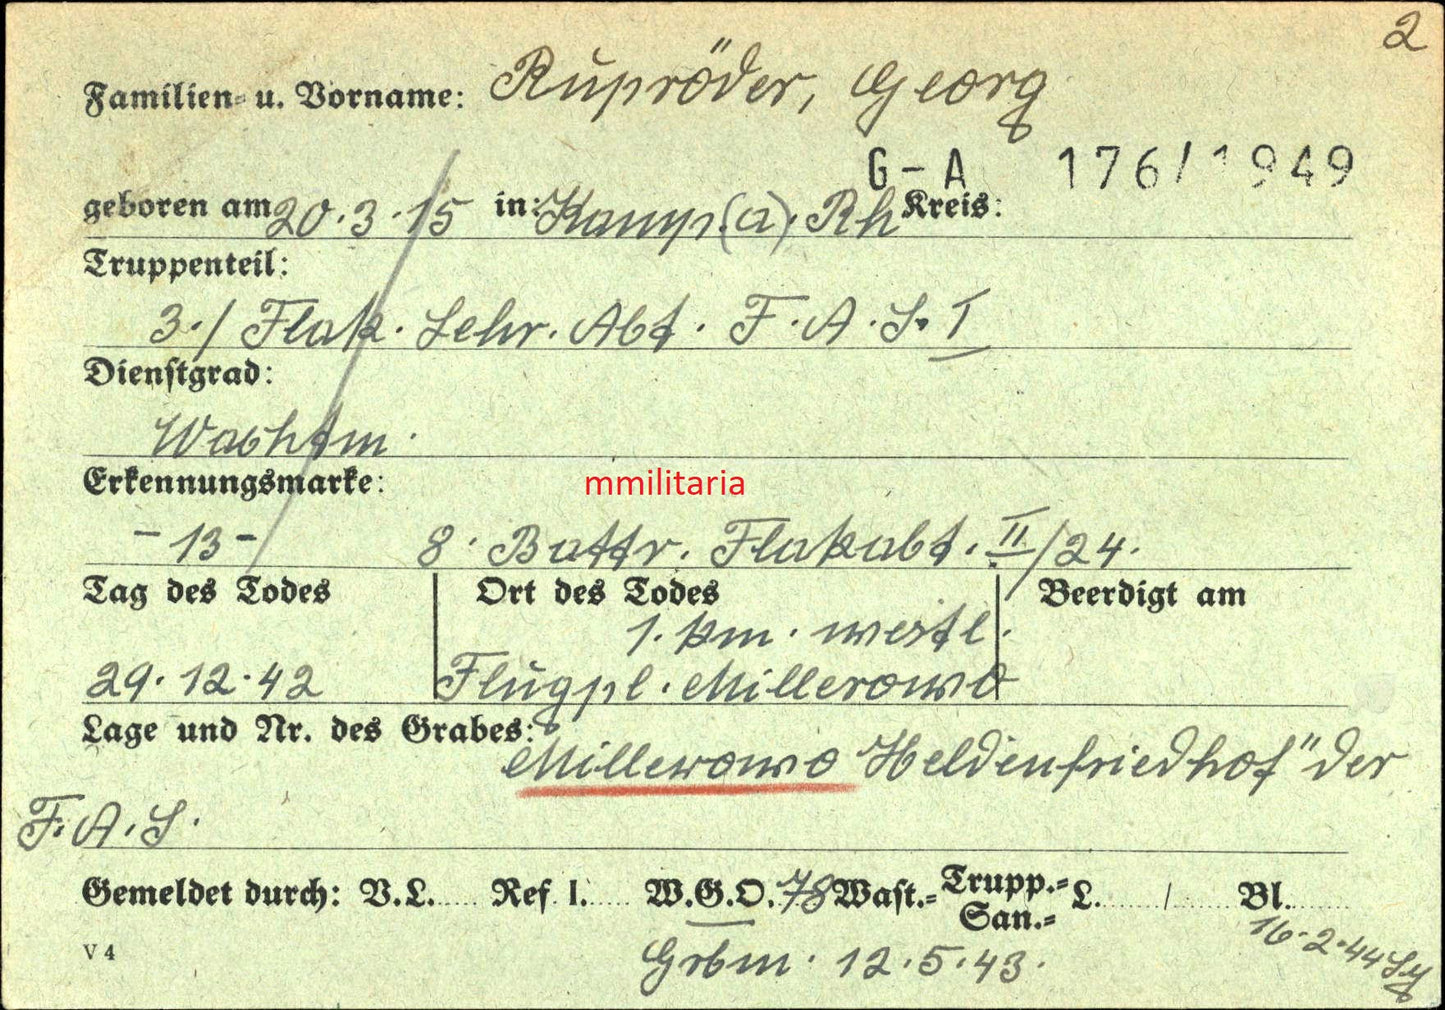 2
Familien- u. Vorname: Rupröder, Georg
G - A 176/1949
geboren am 20.3.15 in: Kamp.(a). Rh Kreis:
Truppenteil:
3./ Flak. Lehr. Abt. F.A.S. I
Dienstgrad:
Wachtm.
Erkennungsmarke:
mmilitaria
- 13 - 8. Battr. Flakabt. II/24.
Tag des Todes Ort des Todes Beerdigt am
1. km. westl.
29.12.42 Flugpl. Millerowo
Lage und Nr. des Grabes:
Millerowo Heldenfriedhof" der
F.A.S.
Gemeldet durch: V.L..... Ref I..... W.G.O. 78 Wast.= Trupp.=
San.= L......./....... Bl.......
16.2.44
V 4
Grbm. 12.5.43.